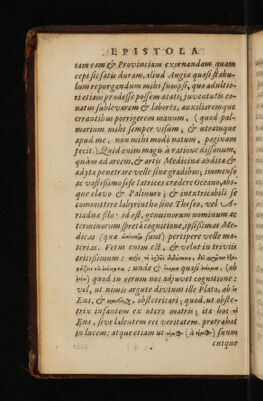 EPISTOLA
tam eam & Provinciam exornandam quam
cepi sic satis duram. Aliud Augiæ quasi stabu-
lum repurgandum mihi sumpsi, quo adultio-
ri etiam prodesse possem ætati; juventutis co-
natus sublevarem & labores, auxiliaremque
errantibus porrigerem manum, (quod pal-
marium mihi semper visum, & utramque
apud me, non mihi modò natum, paginam
fecit.) Quid enim magis à ratione dissonum,
quàm ad arcem, & artis Medicinæ abdita &
adyta penetrare velle sine gradibus; immenso
ac vastissimo sese latrices tradere Oceano, abs-
que clavo & Palinuro; & inextricabili se
committere labyrintho sine Theseo, vel A-
riadnæ filo: id est, genuinorum nominum ac
terminorum spretâ cognitione, ipsissimas Me-
dicas (quæ sunt) percipere velle ma-
terias. Vetus enim est, & velut in triviis
tritissimum:
unde & quasi (ab
) quod in rerum nos adjuvet cognitione:
vel, ut nimis argutè divinum ille Plato, ab
Ens, & obstetricari; quod, ut obste-
trix infantem ex utero matris; ita hoc
Ens, sive latentem rei veritatem protrahat
in lucem; atque etiam ut suum
cuique